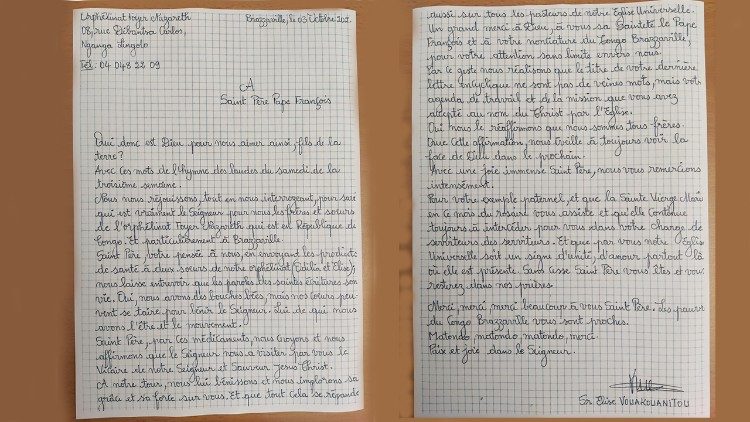 Orphelinat Foyer Nazareth
08, rue Débantsa Carlos,
Nganga Lingolo
Tél: 04 048 22 09
Brazzaville, le 03 Octobre 202
A
Saint Père Pape François
Qui donc est Dieu pour nous aimer ainsi, fils de la
terre ?
Avec ces mots de l'hymne des laudes du samedi de la
troisième semaine.
Nous nous réjouissons, tout en nous interrogeant, pour savoir
qui est vraiment le Seigneur pour nous les frères et soeurs
de l'orphelinat Foyer Nazareth qui est en République du
Congo. Et particulièrement à Brazzaville.
Saint Père votre pensée à nous, en envoyant les produits
de santé à deux soeurs de notre orphelinat (Edilia et Elise),
nous laisse entrevoir que les paroles des saintes écritures sont
vie. Oui, nous avons des bouches bées, mais nos coeurs peu-
vent se taire pour bénir le Seigneur. Lui de qui nous
avons l'être et le mouvement.
Saint Père, par ces médicaments, nous croyons et nous
affirmons que le Seigneur nous a visiter par vous le
Vicaire de notre Seigneur et Sauveur Jésus Christ.
A notre tour, nous lui bénissons et nous implorons sa
grâce et sa force sur vous. Et que tout cela se répande
aussi sur tous les pasteurs de notre Eglise Universelle.
Un grand merci à Dieu, à vous sa Sainteté le Pape
François et à votre nonciature du Congo Brazzaville,
pour votre attention sans limite envers nous.
Par ce geste nous réalisons que le titre de votre dernière
lettre encyclique ne sont pas de veines mots, mais votre
agenda de travail et de la mission que vous avez
accepté au nom du Christ par l'Eglise.
Oui nous le réaffirmons que nous sommes tous frères.
Que cette affirmation, nous éveille à toujours voir la
face de Dieu dans le prochain.
Avec une joie immense Saint Père, nous vous remercions
intensément.
Pour votre exemple paternel, et que la Sainte Vierge Marie
en ce mois du rosaire vous assiste et qu'elle continue
toujours à intercéder pour vous dans votre charge de
serviteurs des serviteurs. Et que par vous notre Eglise
Universelle soit un signe d'unité, d'amour partout là
où elle est présente. Sans cesse Saint Père vous êtes et vous
resterez dans nos prières.
Merci, merci, merci beaucoup à vous Saint Père. Les pauvres
du Congo Brazzaville vous sont proches.
Matondo, matondo, matondo, merci.
Paix et joie dans le Seigneur.
Sr Elise VOUAKOUANITOU